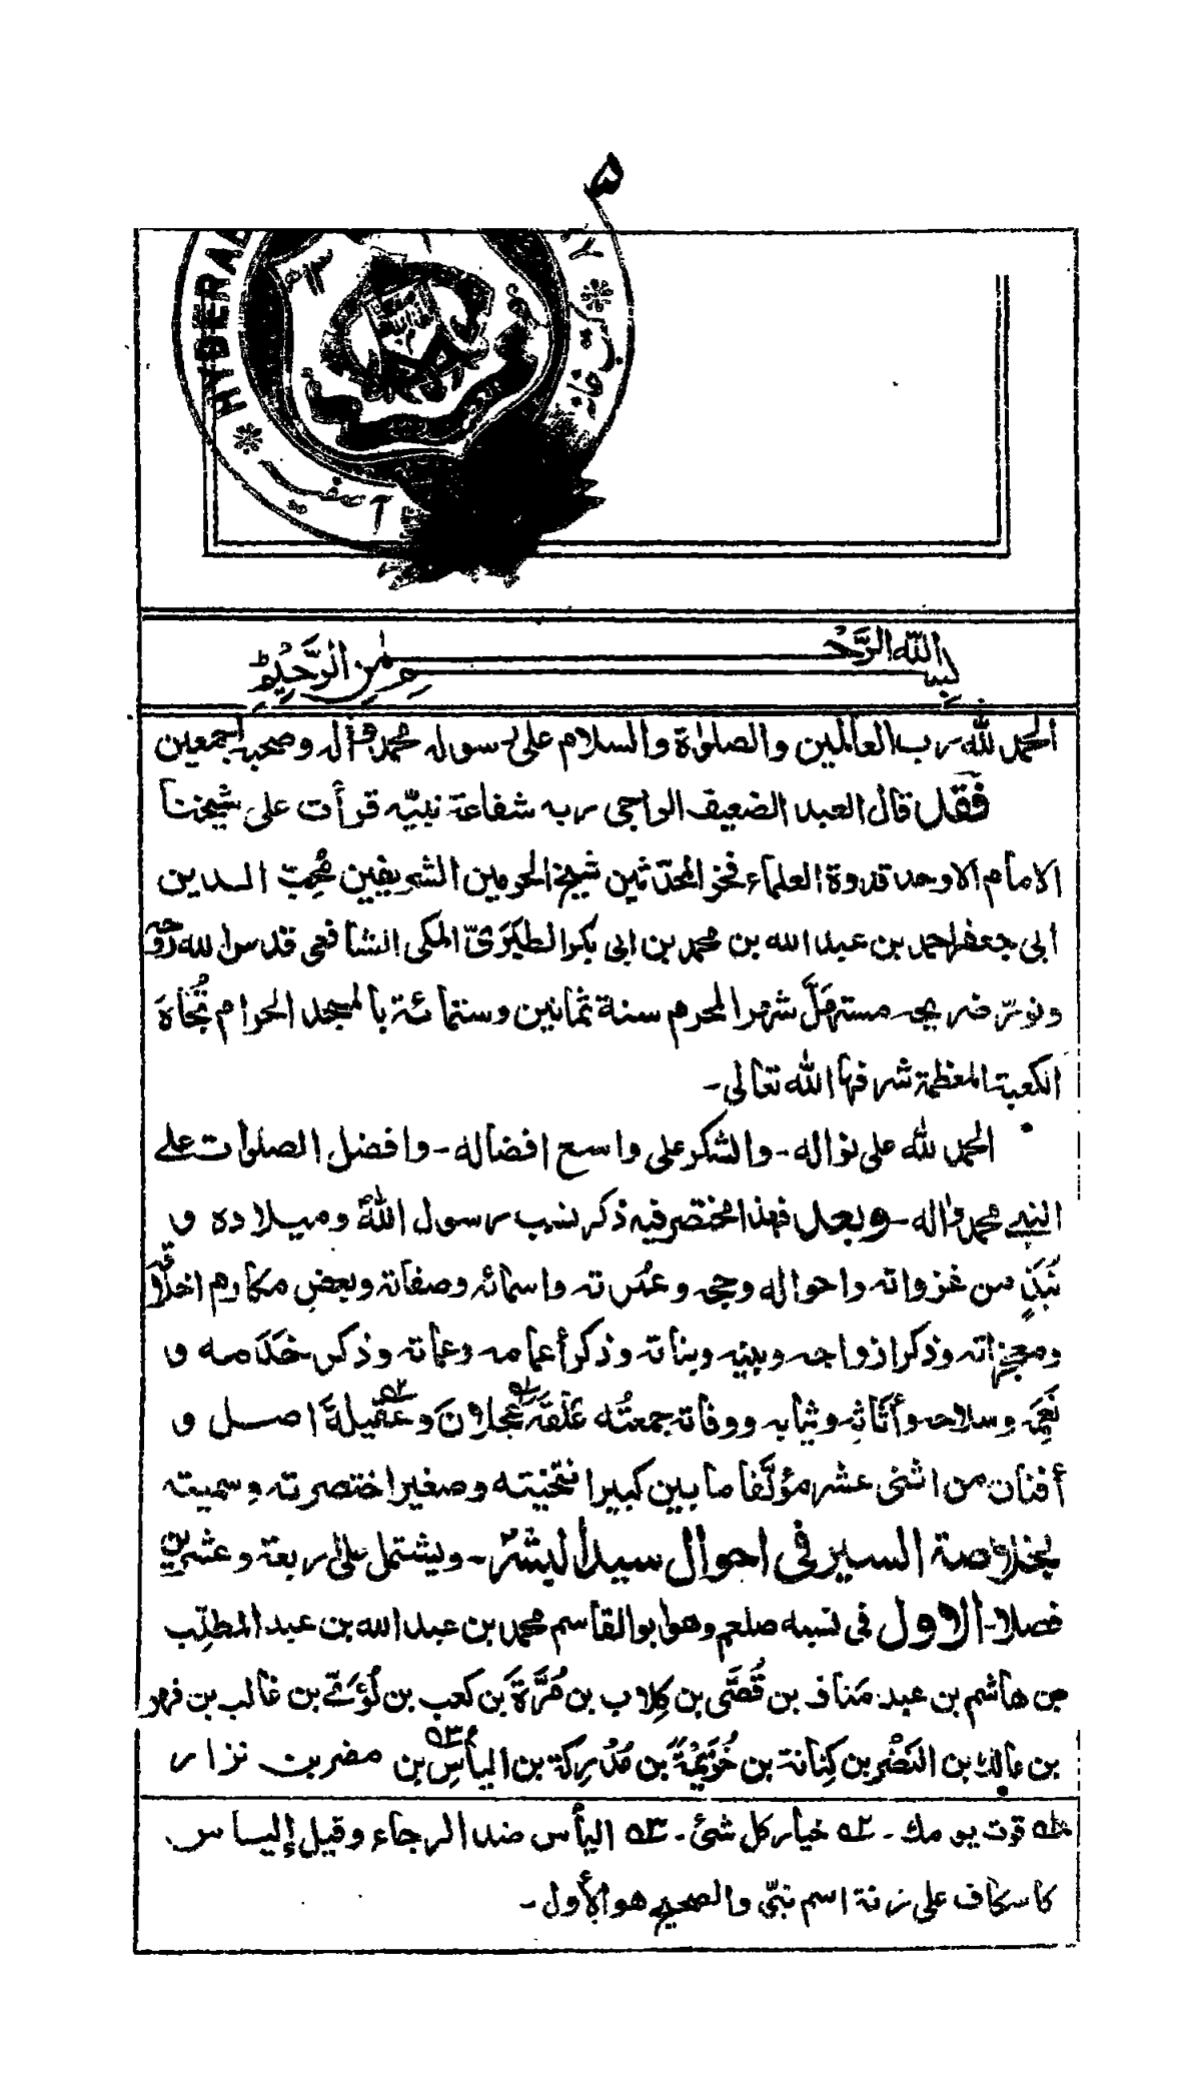 ۵
HYDERAB
آصفیہ
بسم الله الرحمن الرحيم
الحمد لله رب العالمين والصلوٰة والسلام على رسوله محمد وآله وصحبه اجمعين
فقد قال العبد الضعيف الراجى ربه شفاعة نبيّه قرأت على شيخنا
الامام الاوحد قدوة العلماء فخر المحدّثين شيخ الحرمين الشريفين مُحِبّ الدين
ابى جعفر احمد بن عبد الله بن محمد بن ابى بكر الطبَرَىّ المكى الشافعى قدس الله رُوحه
ونوّر ضريحه مستهَلَّ شهر المحرم سنة ثمانين وستمائة بالمسجد الحرام تُجَاهَ
الكعبة المعظمة شرفها الله تعالى۔
الحمد لله على نواله۔ والشكر على واسع افضاله۔ وافضل الصلوات على
النبى محمد واله۔ وبعد فهذا مختصر فيه ذكر نسب رسول الله وميلاده و
نُبَذٍ من غزواته واحواله وحجه وعُمَرته واسمائه وصفاته وبعضِ مكارم اخلاقه
ومعجزاته وذكر ازواجه وبنيه وبناته وذكر أعمامه وعماته وذكر خَدَمه و
نَعَمِه وسلاحه وأثاثِه وثيابه ووفاته جمعتُه عُلْقَةَ عَجلانَ وعَقيلةَ اصل و
أفنان من اثنى عشر مؤلَّفا ما بين كبير انتخبته وصغير اختصرته وسميته
بخلاصة السير فى احوال سيد البشر۔ ويشتمل على اربعة وعشرين
فصلا۔ الاول فى نسبه صلعم وهو ابو القاسم محمد بن عبد الله بن عبد المطلب
بن هاشم بن عبد مَناف بن قُصَىّ بن كِلاب بن مُرَّةَ بن كعب بن لُؤَىّ بن غالب بن فهر
بن مالك بن النَضْر بن كِنانة بن خُزَيْمَةَ بن مُدْرِكة بن اليأسِ بن مضر بن نزار
۱ قوت يومك۔ ۲ خيار كل شئ۔ ۳ اليأس ضد الرجاء وقيل إلياس
كاسكاف على زنة اسم نبىّ والصحيح هو الأول۔